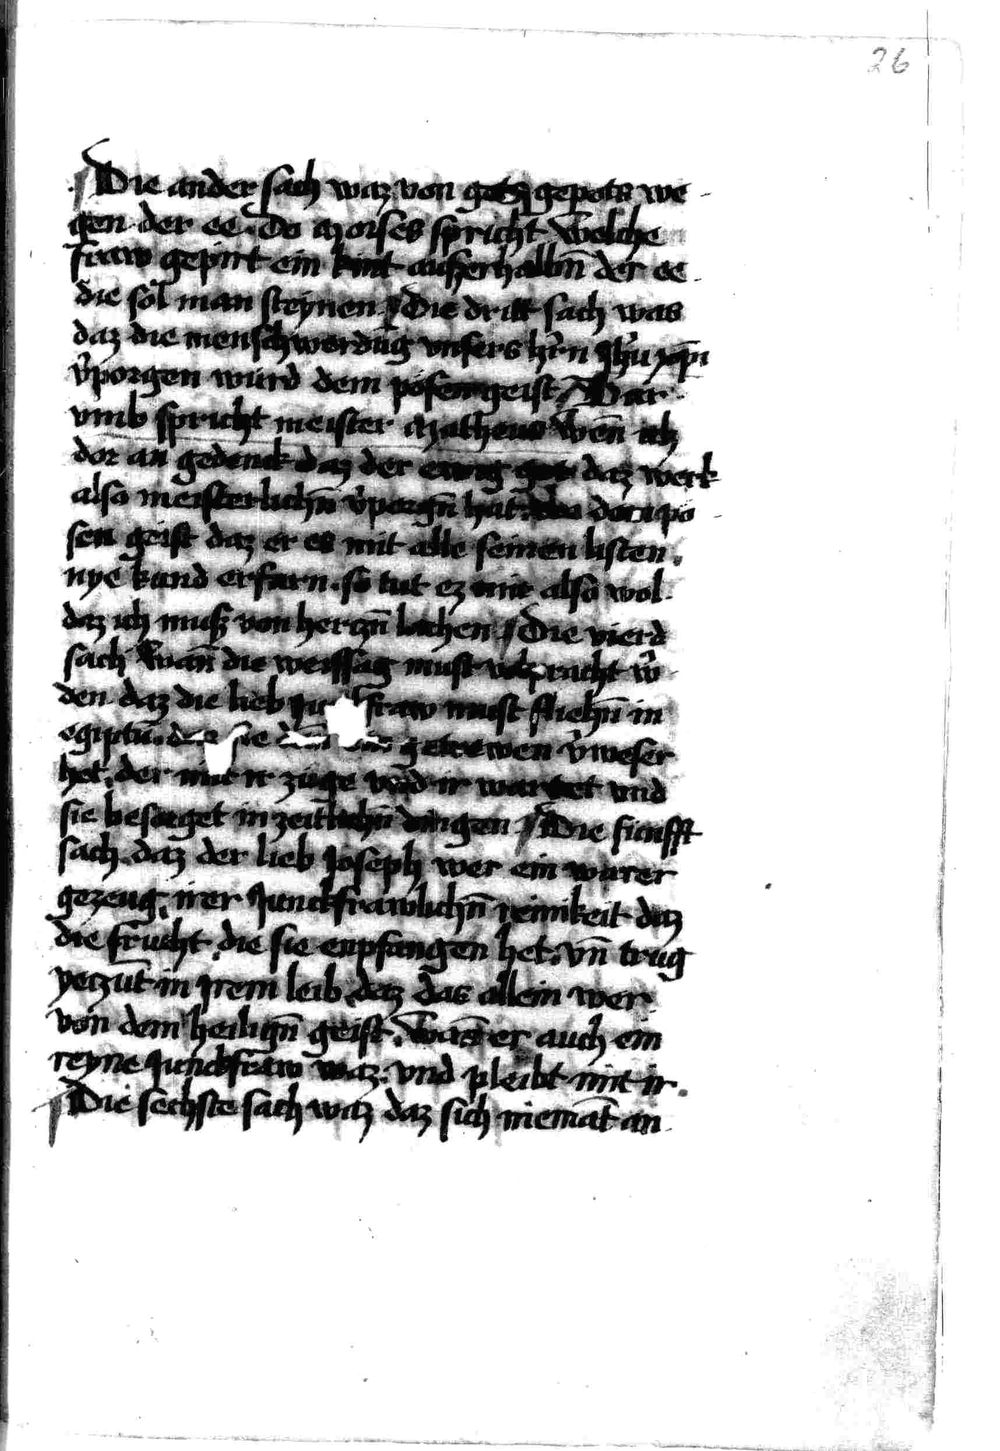 26
Die ander sach waz von gots gepots we
gen der ee. Do moises spricht welche
fraw gepirt ein kint ausserhalbn̄ der ee
die sol man steynen Die dritt sach was
daz die menschwerdūg vnsers hr̄n Jhū xp̄i
v̓porgen würd dem pösen geist Dar
vmb spricht meister Matheus Wen̄ ich
dor an gedenck daz der ewig got daz werk
also meisterlichn̄ v̓porgn̄ hat dem pö
sen geist daz er es mit alle seinen listen.
nye kund erfarn. so tut ez mir also wol
daz ich muß von herczn̄ lachen Die vierd
sach Wan̄ die weissag must volpracht w̓
den daz die lieb fraw must fliehn̄ in
egiptū. daz sie getrewen v̓weser
het. der mit ir züge vnd ir wartet vnd
sie besorget in zeitlichn̄ dingen Die funfft
sach. daz der lieb Joseph wer ein warer
gezeug. irer Junckfrawlichn̄ reinikeit daz
die frucht. die sie enpfangen het. vn̄ trug
yeczūt in Jrem leib daz das allein wer
von dem heilign̄ geist. Wan̄ er auch ein
reyne Junckfraw waz. vnd pleibt mit ir.
Die sechste sach waz daz sich niemāt an